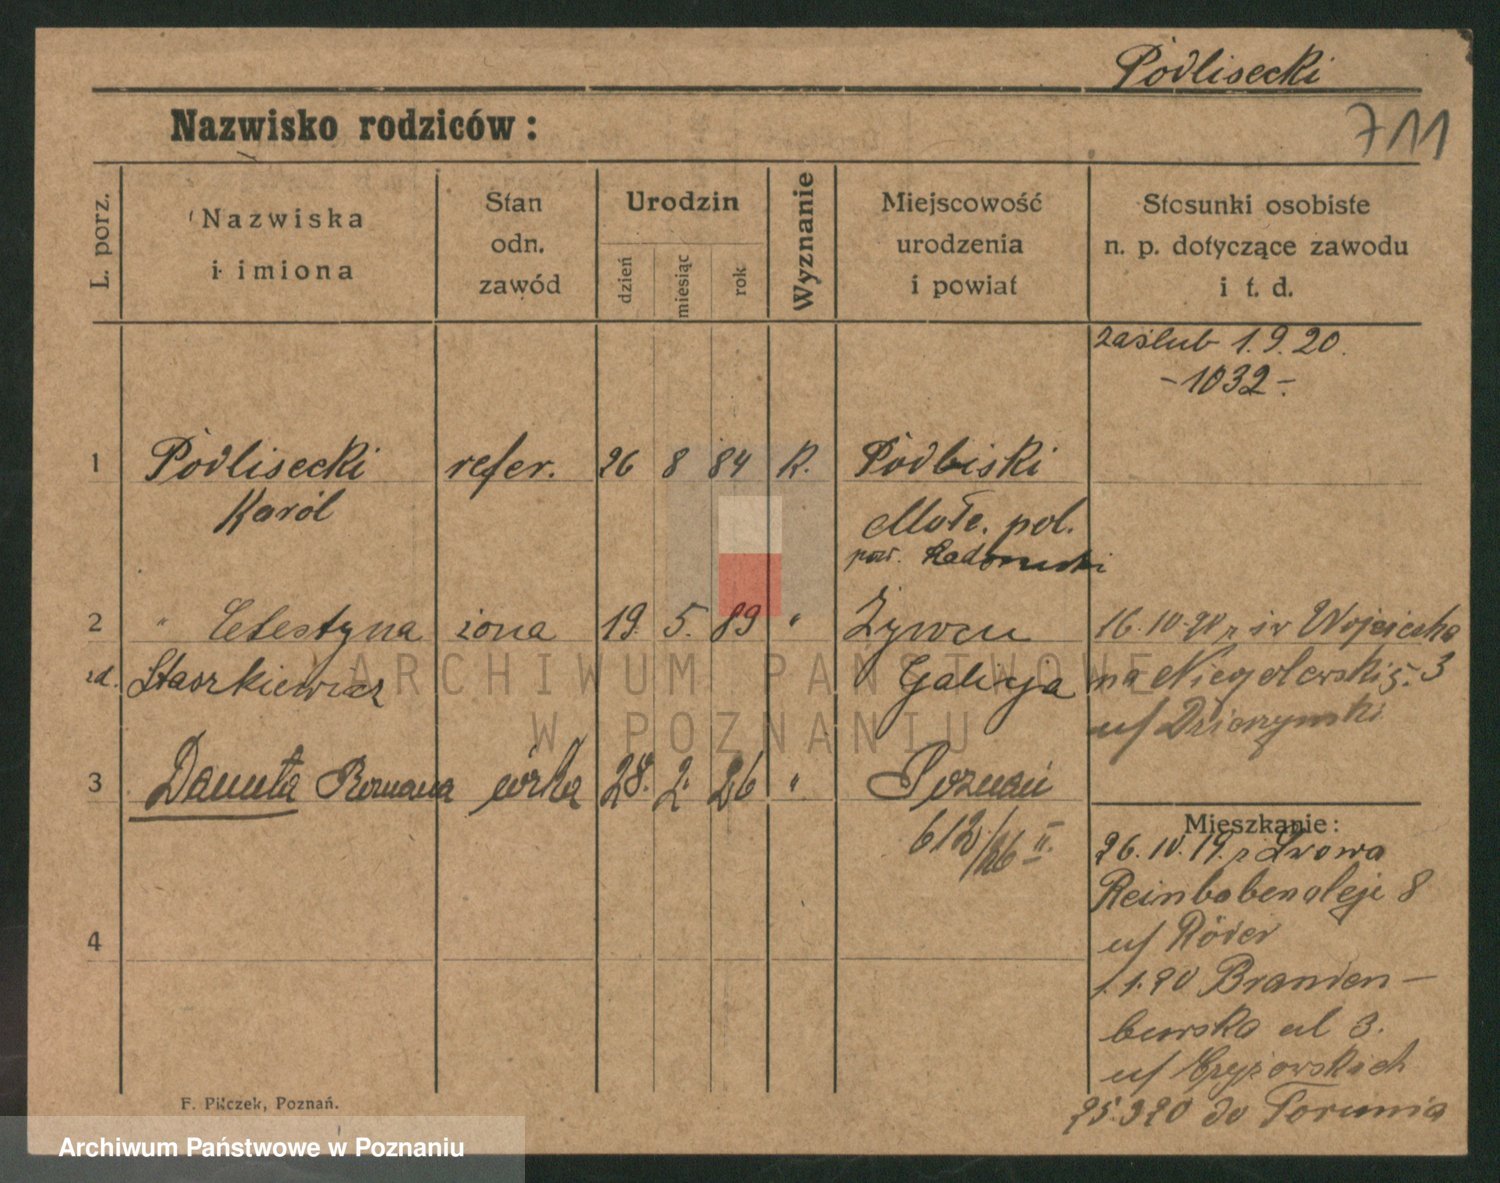 Podlisecki
Nazwisko rodziców:
711
L. porz.
Nazwiska
i imiona
Stan
odn.
zawód
Urodzin
dzień
miesiąc
rok
Wyznanie
Miejscowość
urodzenia
i powiat
Stosunki osobiste
n. p. dotyczące zawodu
i t. d.
zaślub 1.9.20.
-1032-
1 Podlisecki refer. 26 8 84 K. Podliski
Karól
Małe. pol.
pow.
2 " Celestyna żona 19. 5. 89 " Żywcu
zd. Staszkiewicz Galicja
16.10.20 z św Wojciecha
na Niegolewskich 3
u/
3 Danuta Romana córka 28. 2. 26 " Poznań
612/26 II.
4
Mieszkanie:
26.10.19. z Lwowa
Reinbabenaleje 8
u/ Röder
1.1.20 Branden-
burska ul 3.
u/
25.3.20 do Torunia
F. Pilczek, Poznań.
ARCHIWUM PAŃSTWOWE
W POZNANIU
Archiwum Państwowe w Poznaniu